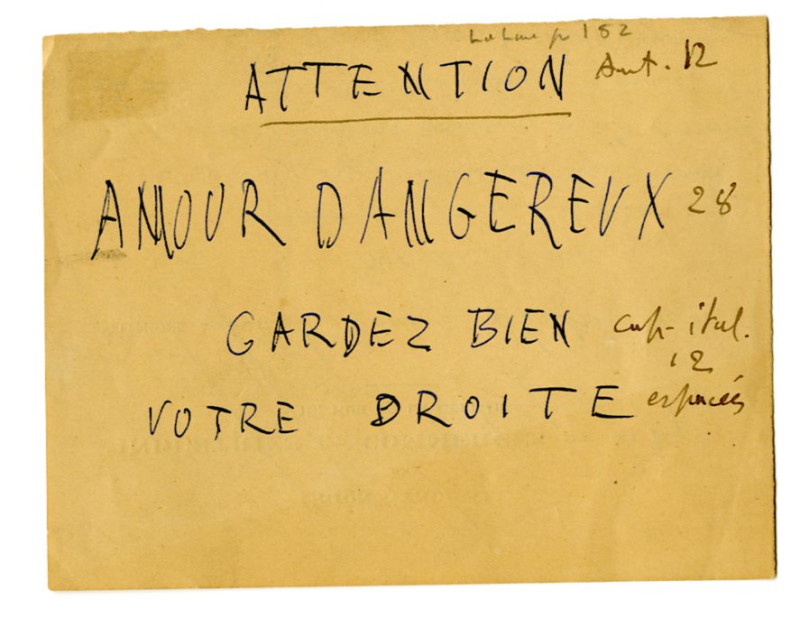 p 152
ATTENTION Ant. 12
AMOUR DANGEREUX 28
GARDEZ BIEN cap. ital.
12
VOTRE DROITE espacées